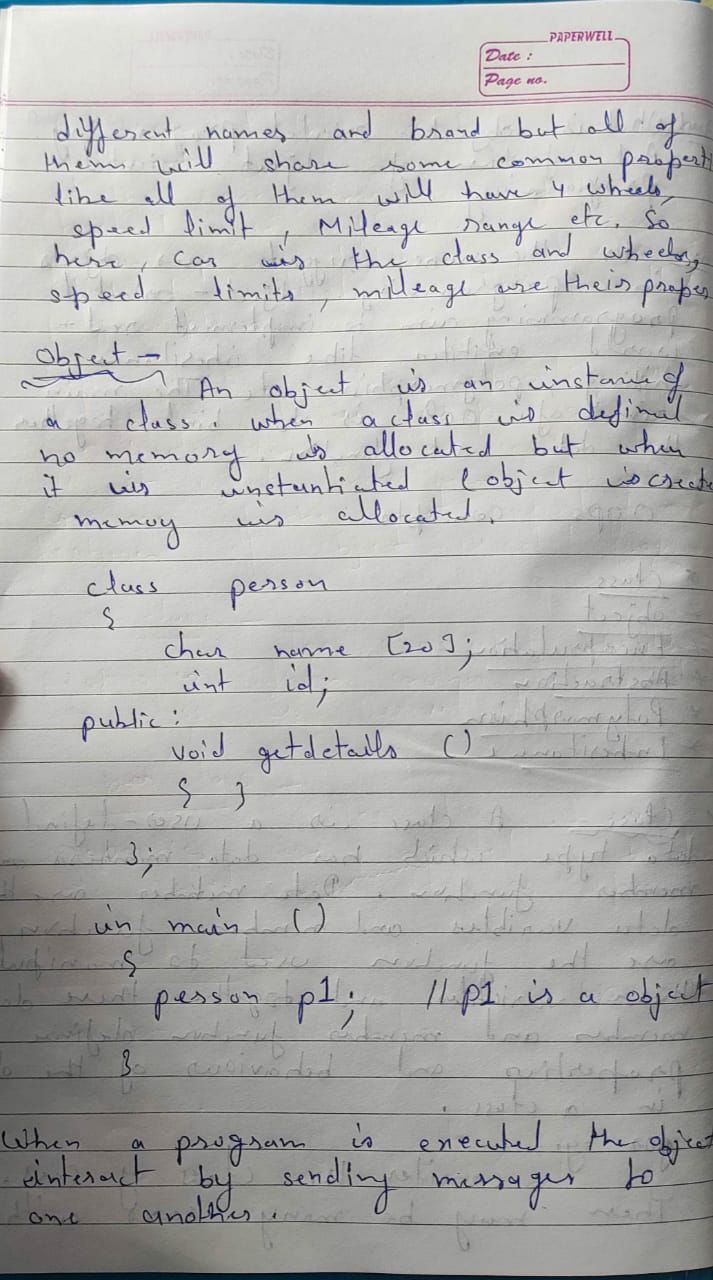 PAPERWELL
Date :
Page no.
different names and brand but all of
them will share some common propert
like all of them will have 4 wheels,
speed limit, Mileage range etc. So
here, car is the class and wheels,
speed limits, mileage are their proper
Object -
An object is an instance of
a class. when a class is defined
no memory is allocated but when
it is instantiated (object is create
memoy is allocated.
class person
{
char name [20];
int id;
public:
void getdetails ()
{ }
};
in main ()
{
person p1; // p1 is a object
}
When a program is executed the object
interact by sending messages to
one another.